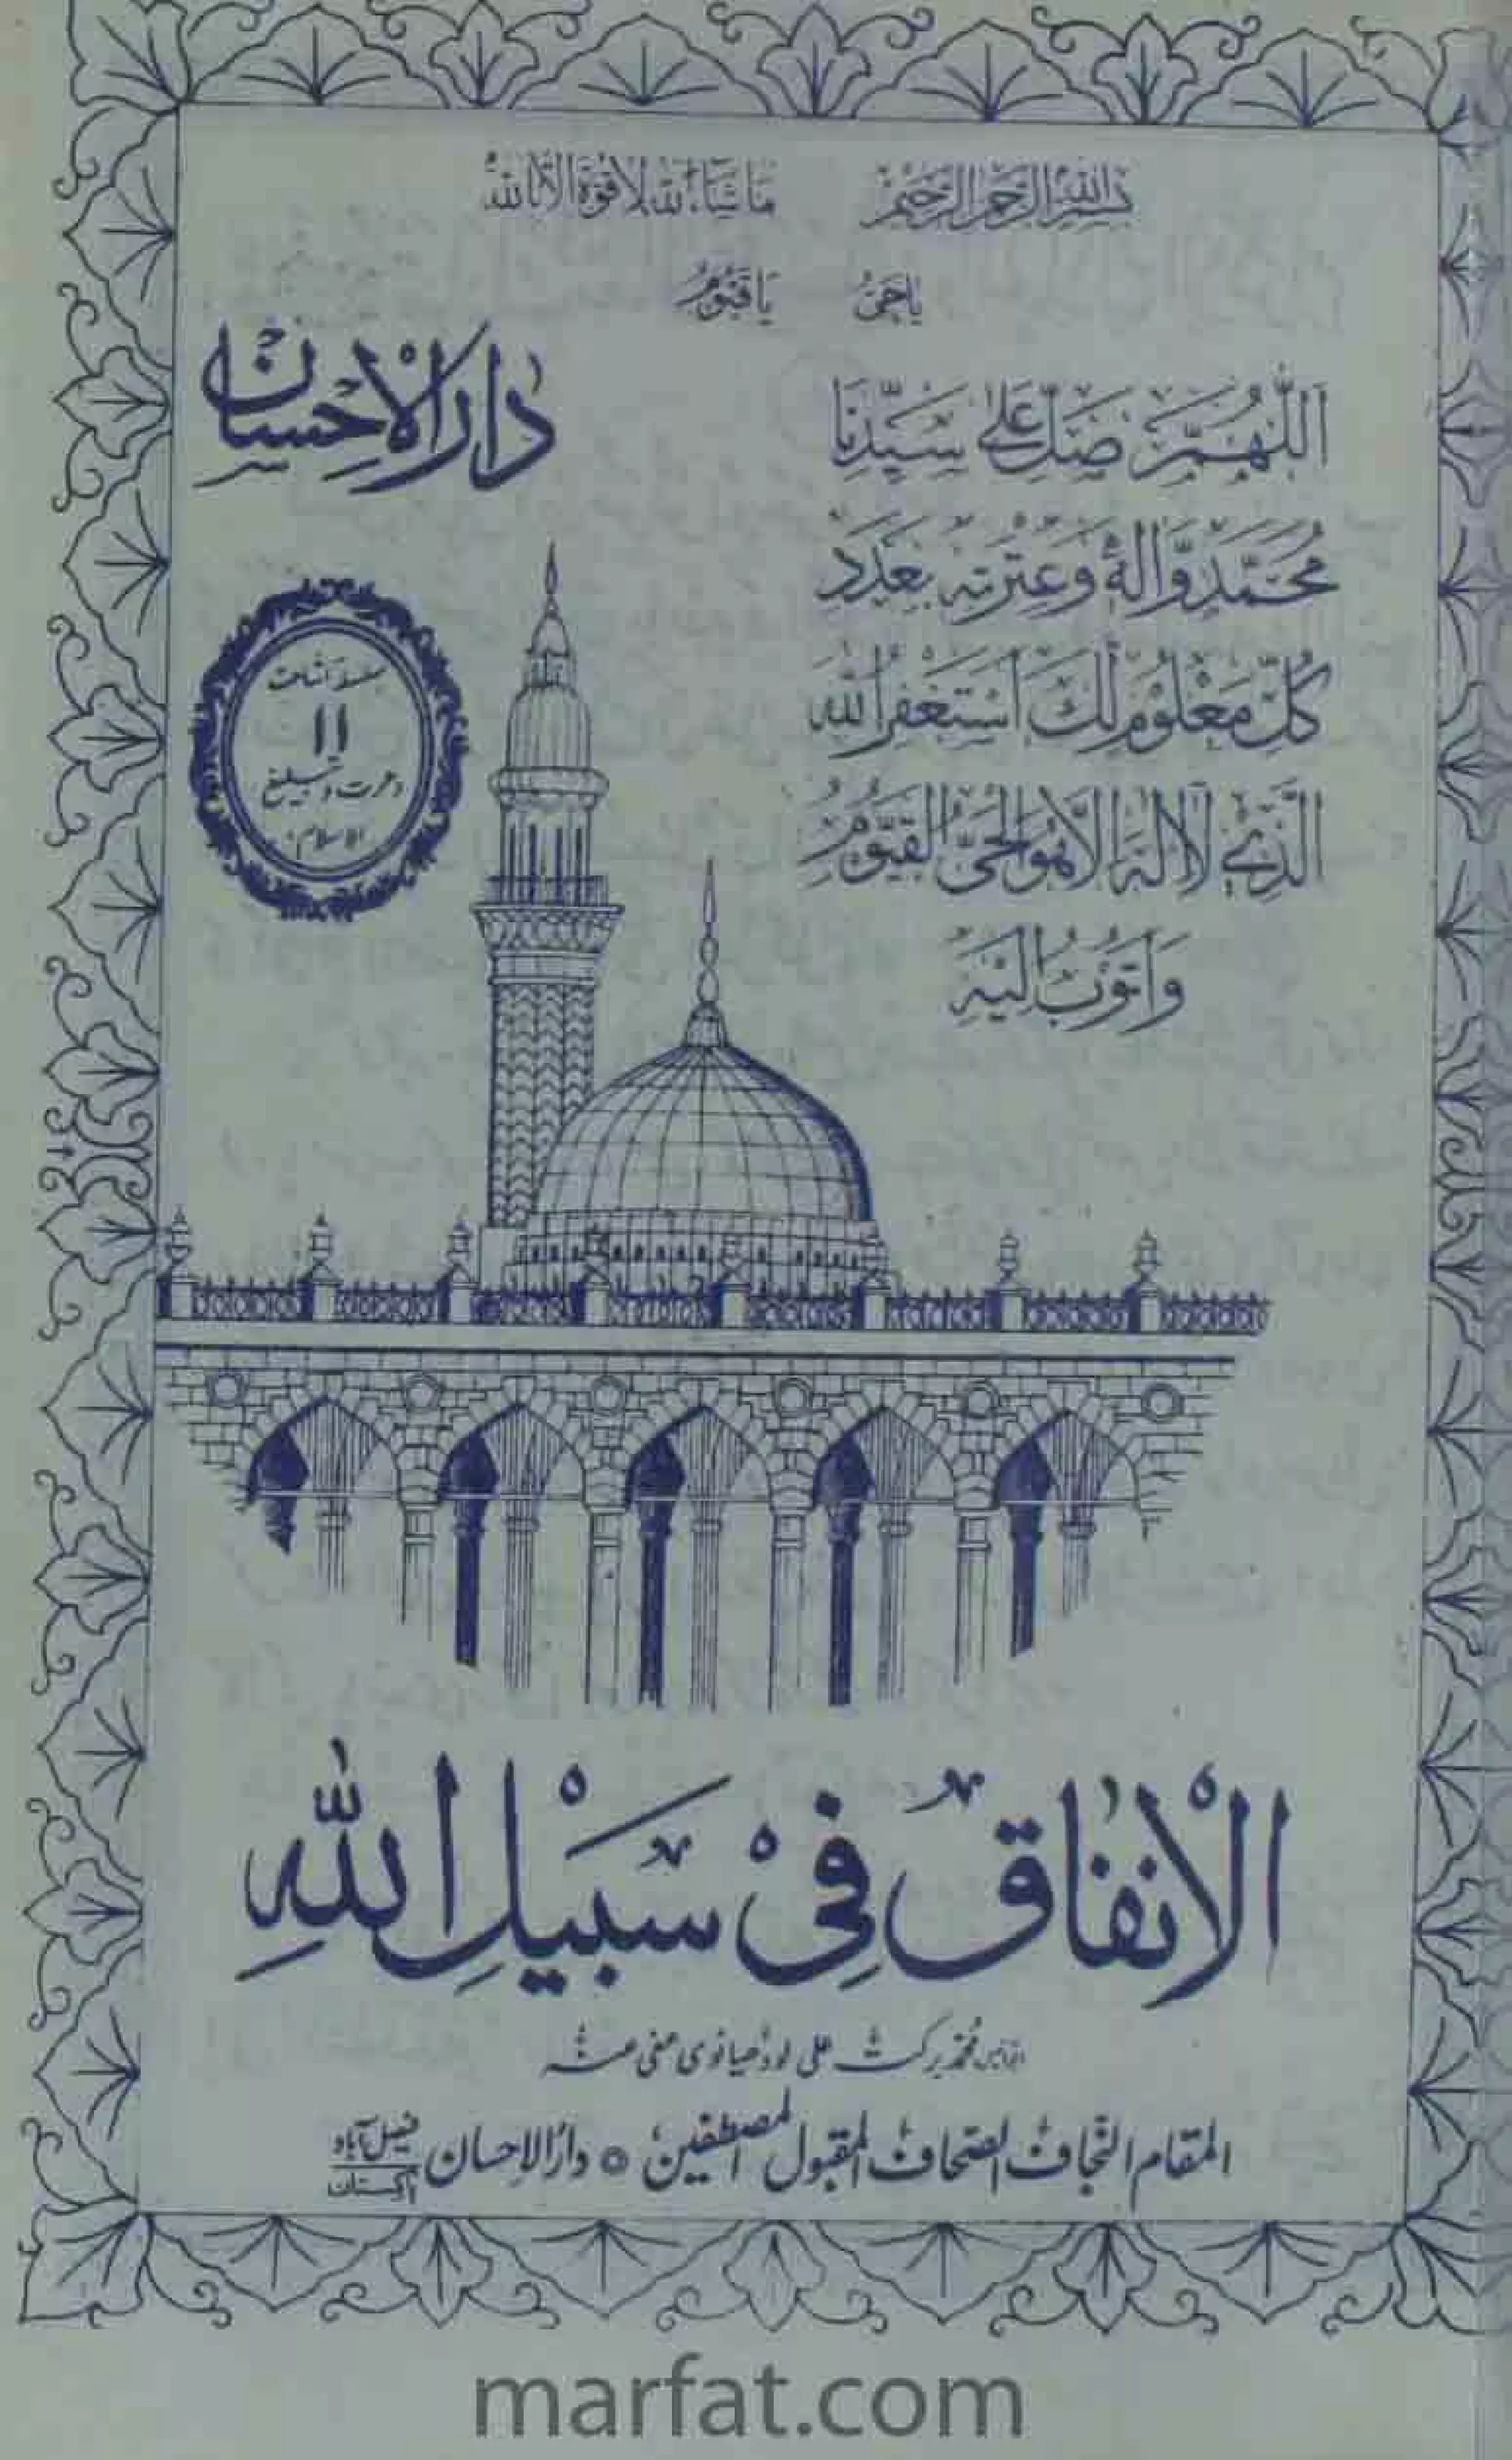 بِسْمِ اللّٰهِ الرَّحْمٰنِ الرَّحِيْمِ مَا شَآءَ اللّٰهُ لَا قُوَّةَ اِلَّا بِاللّٰهِ
يَا حَيُّ يَا قَيُّوْمُ
دارُالْاِحسان
اَللّٰهُمَّ صَلِّ عَلٰى سَيِّدِنَا
مُحَمَّدٍ وَّاٰلِهٖ وَعِتْرَتِهٖ بِعَدَدِ
كُلِّ مَعْلُوْمٍ لَّكَ اَسْتَغْفِرُ اللّٰهَ
الَّذِيْ لَآ اِلٰهَ اِلَّا هُوَ الْحَيُّ الْقَيُّوْمُ
وَاَتُوْبُ اِلَيْهِ
سلسلہ اشاعت
۱۱
دعوت و تبلیغ
الاسلام
اَلْاِنْفَاقُ فِيْ سَبِيْلِ اللّٰهِ
محمد برکت علی لودھیانوی عفی عنہ
المقام النجاف الصحاف المقبول المصطفین ○ دارالاحسان فیصل آباد پاکستان
marfat.com